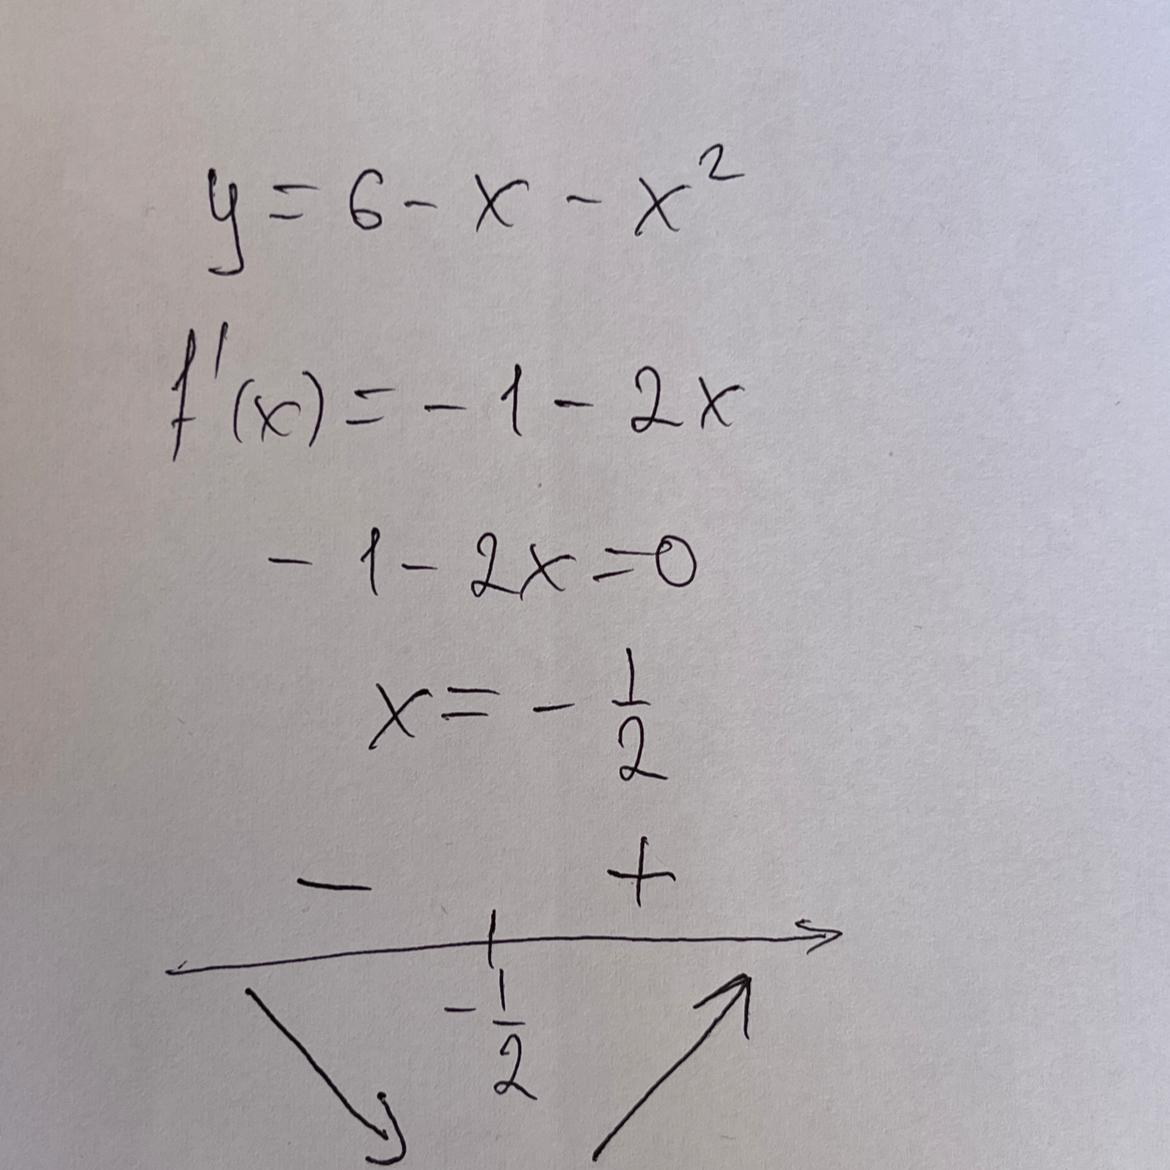 y = 6 - x - x²
f'(x) = - 1 - 2x
- 1 - 2x = 0
x = - 1/2
- +
- 1/2